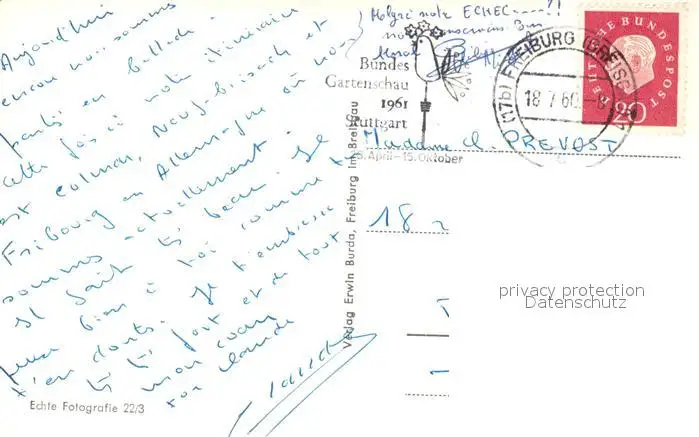 Aujourd'hui
encore nous sommes
partis en ballade.
cette fois ci notre itinéraire
est colmar, Neuf-brisach et
Fribourg en Allemagne où nous
sommes actuellement.
Il fait très beau. Je
pense bien à toi comme tu
t'en doutes. Je t'embrasse
très très fort et de tout
mon cœur
ton claude
Echte Fotografie 22/3
Verlag Erwin Burda, Freiburg im Breisgau
Malgré note ECHEC-----?!
Moral
Bundes
Gartenschau
1961
Stuttgart
25. April - 15. Oktober
(17b) FREIBURG (BREISG
18.7.60.-9
DEUTSCHE BUNDESPOST
20
Madame C. PREVOST
18
privacy protection
Datenschutz